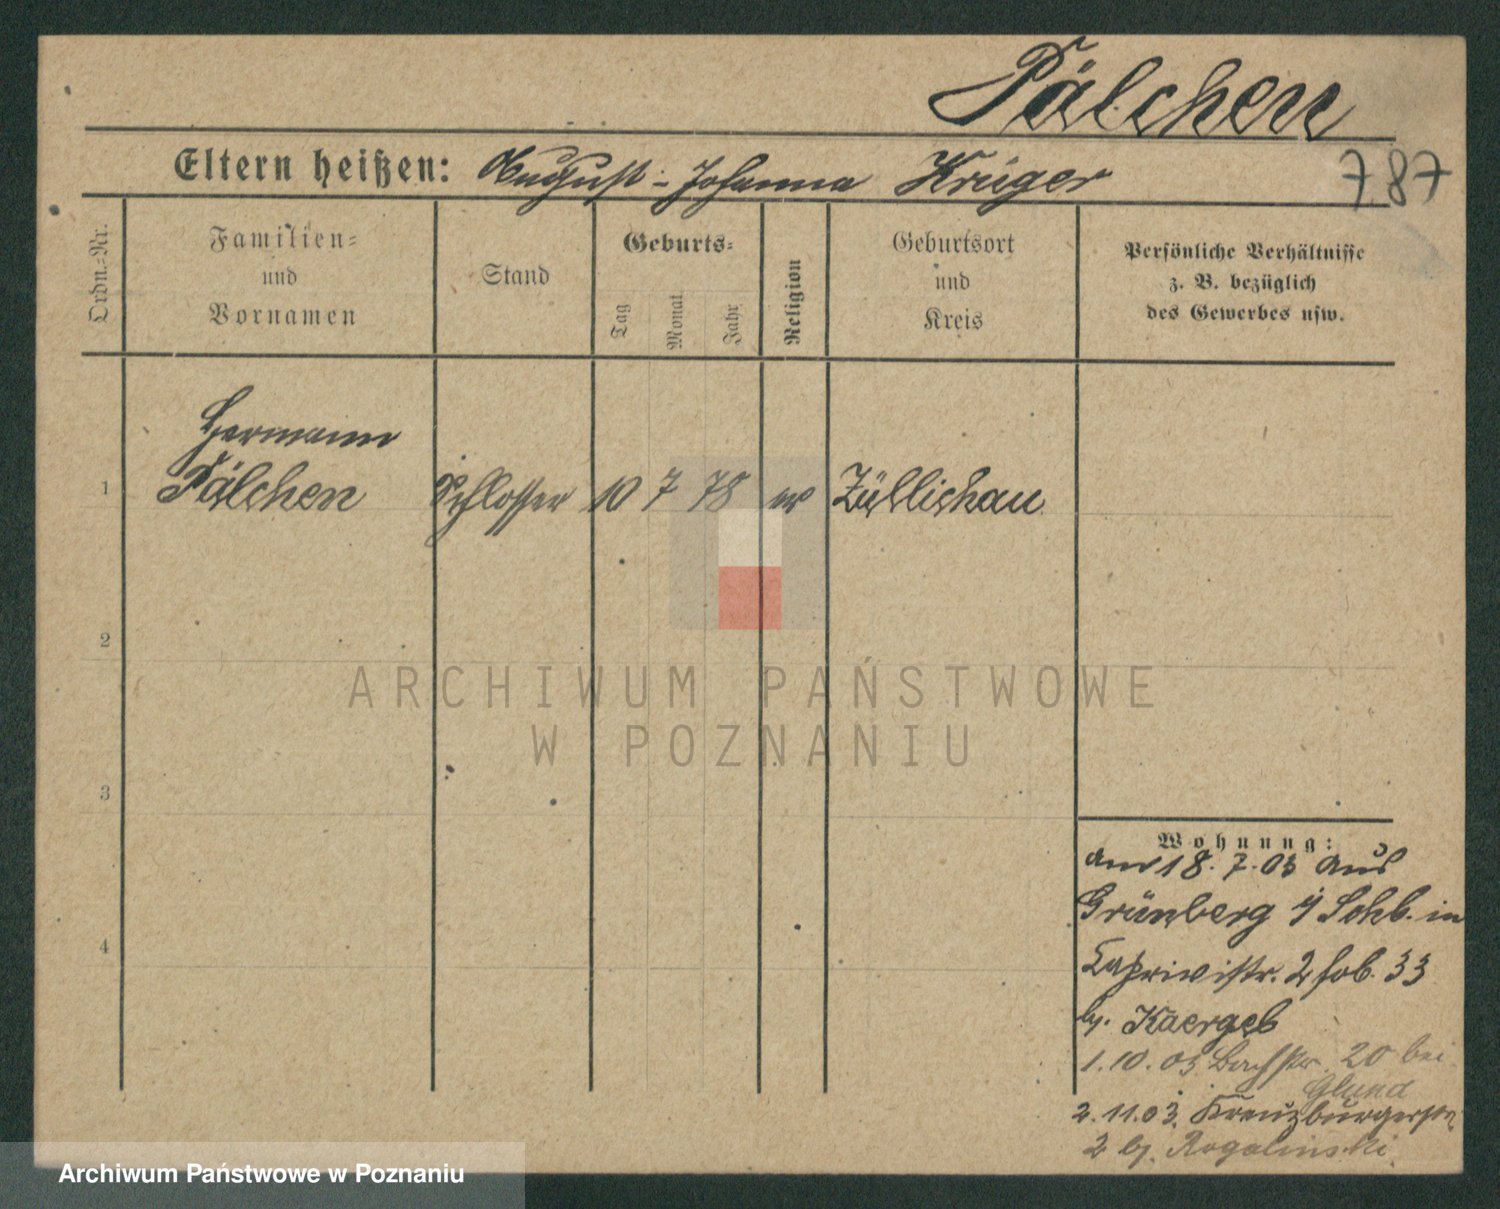 Pälchen
Eltern heißen: August - Johanna Krüger
787
Ordn.-Nr.
Familien-
und
Vornamen
Stand
Geburts-
Tag
Monat
Jahr
Religion
Geburtsort
und
Kreis
Persönliche Verhältnisse
z. B. bezüglich
des Gewerbes usw.
Hermann
1 Pälchen Schlosser 10 7 78 ev Züllichau
2
3
4
Wohnung:
am 18. 7. 03 aus
Grünberg i/ Schl. in
Caprivistr. 2 fol. 33
bj. Kaergeb
1.10.03 Bachstr. 20 bei
Glund
2.11.03. Kreuzburgerstr.
2 bj. Rogalinski
ARCHIWUM PAŃSTWOWE
W POZNANIU
Archiwum Państwowe w Poznaniu